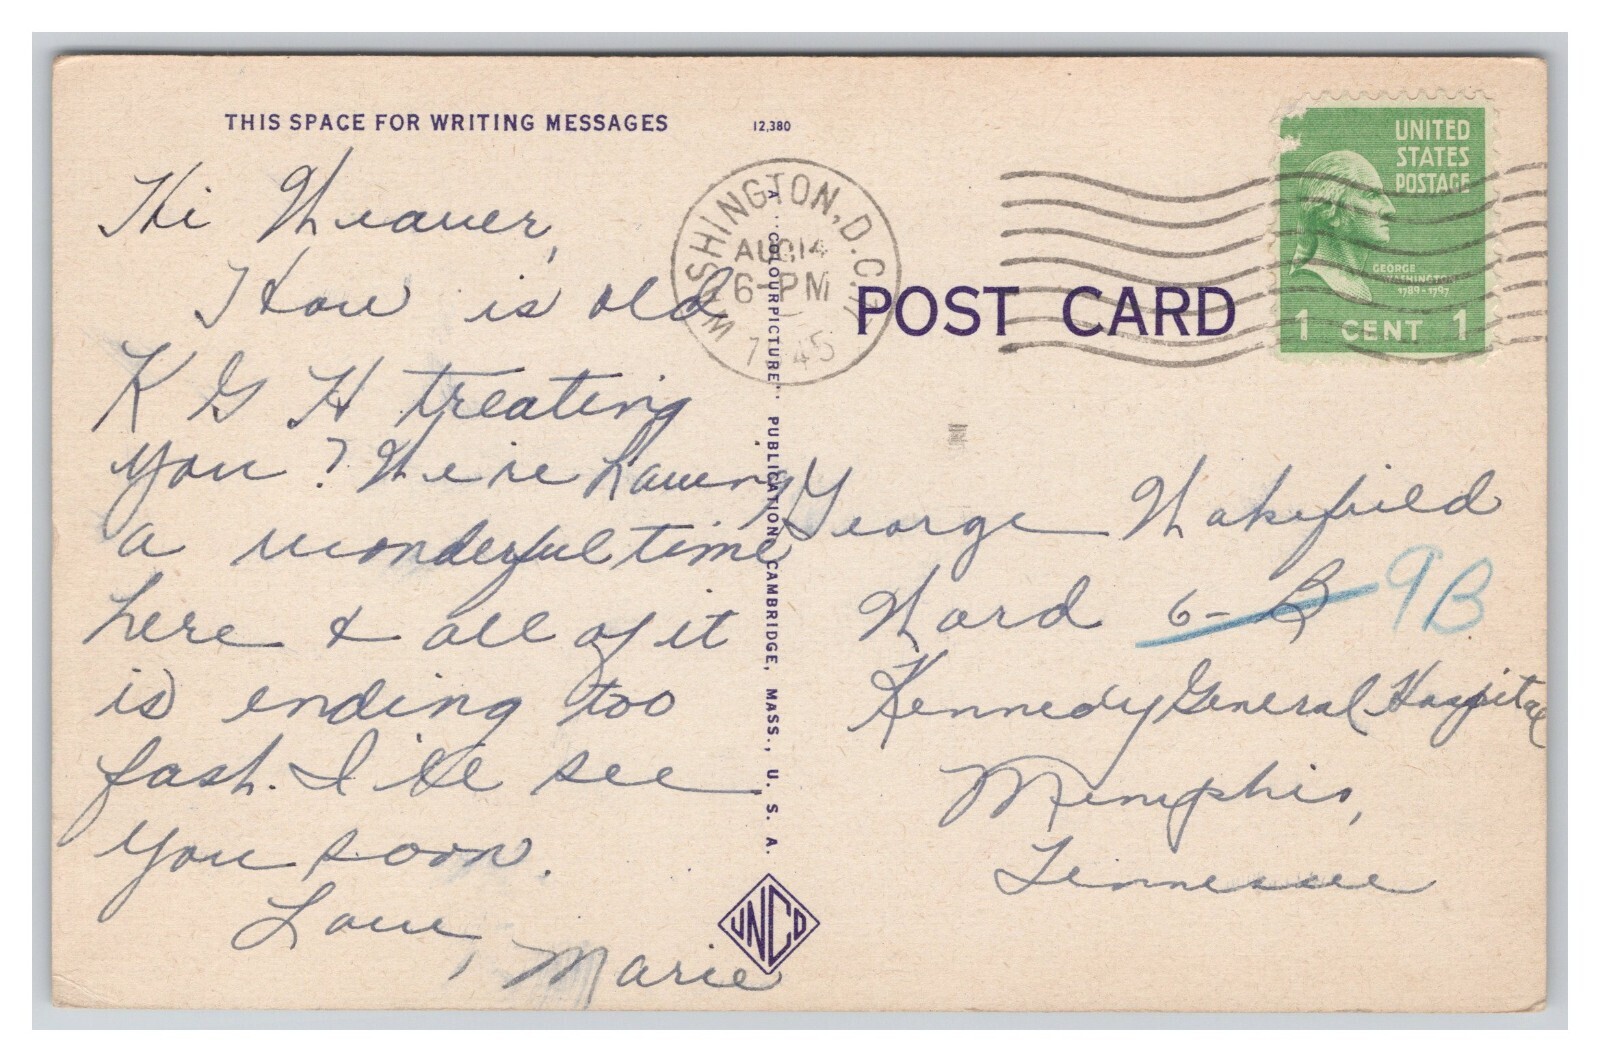 THIS SPACE FOR WRITING MESSAGES
12,380
Hi Weaver,
How is old
K G H treating
you? We're having
a wonderful time
here & all of it
is ending too
fast. I'll see
you soon.
Love,
Marie
A "COLOURPICTURE" PUBLICATION, CAMBRIDGE, MASS., U. S. A.
UNCO
WASHINGTON, D.C.
AUG 14
6-PM
1945
POST CARD
UNITED
STATES
POSTAGE
GEORGE
WASHINGTON
1789-1797
1 CENT 1
George Wakefield
Ward 6-B 9B
Kennedy General Hospital
Memphis,
Tennessee